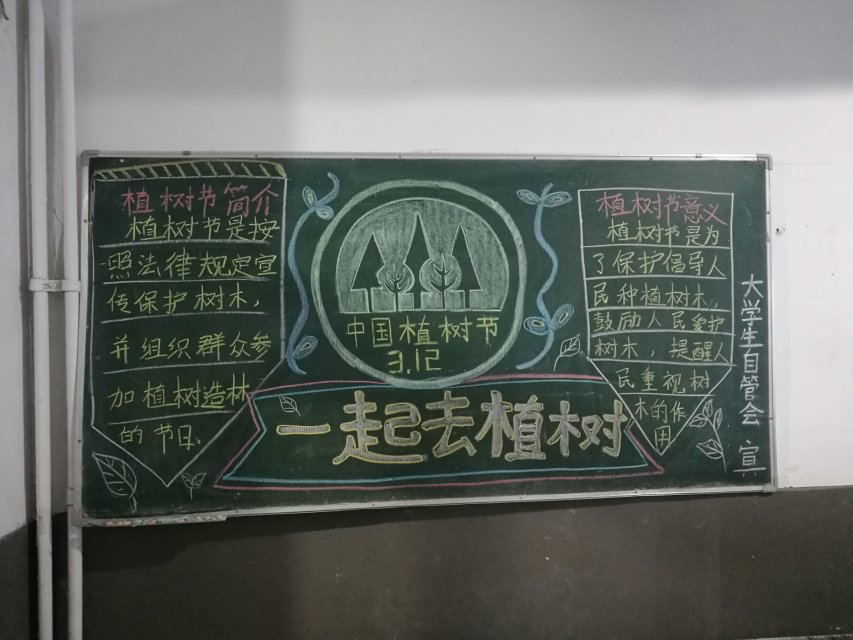 植树节简介
植树节是按
照法律规定宣
传保护树木，
并组织群众参
加植树造林
的节日.
中国植树节
3.12
一起去植树
植树节意义
植树节是为
了保护倡导人
民种植树木，
鼓励人民爱护
树木，提醒人
民重视树
木的作
用
大学生自管会 宣